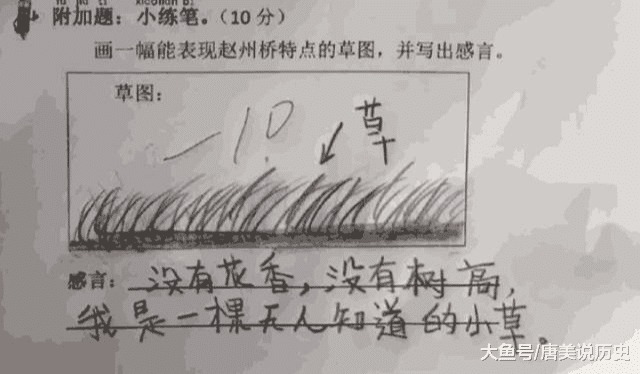 附加题：小练笔。（10分）
画一幅能表现赵州桥特点的草图，并写出感言。
草图：
-10
草
感言：没有花香，没有树高，
我是一棵无人知道的小草。
大鱼号/唐美说历史